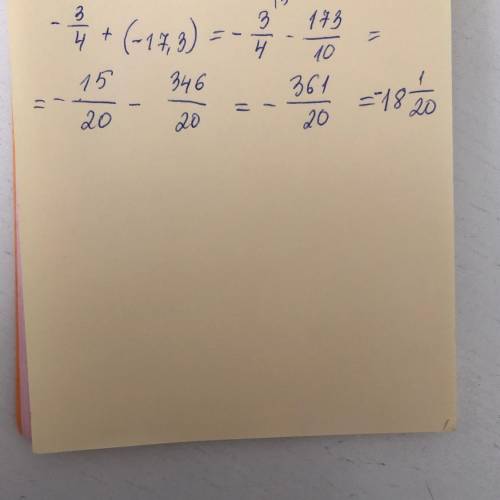 -3/4 + (-17,3) = -3/4 - 173/10 =
= -15/20 - 346/20 = -361/20 = -18 1/20